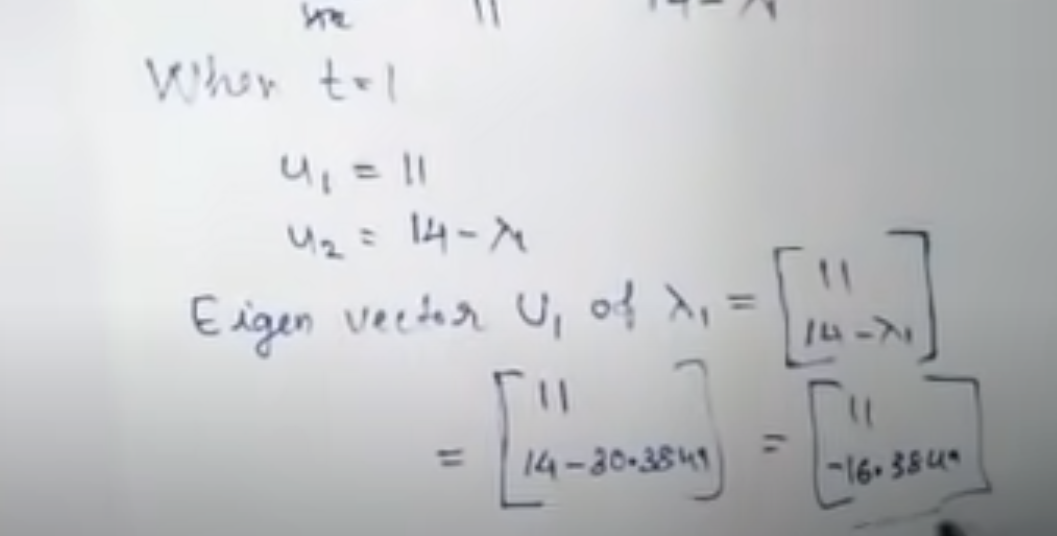 11 14-λ
When t=1
u₁ = 11
u₂ = 14-λ₁
Eigen vector U₁ of λ₁ = [11
14-λ₁]
= [11
14-30.3849] = [11
-16.3849]